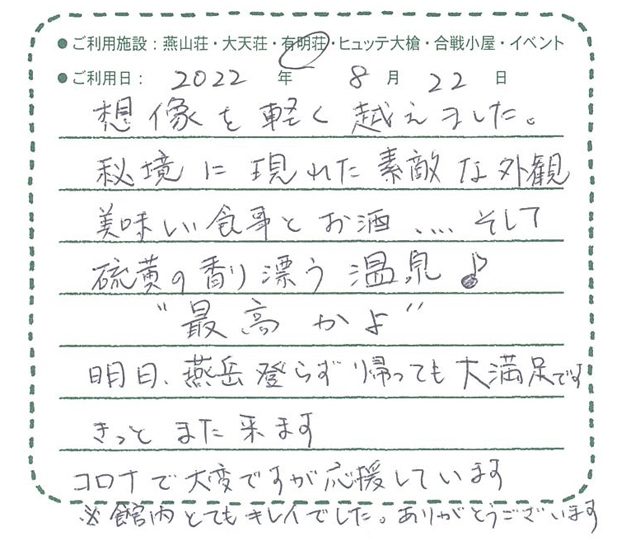 ●ご利用施設：燕山荘・大天荘・有明荘・ヒュッテ大槍・合戦小屋・イベント
●ご利用日：2022年 8月 22日
想像を軽く越えました。
秘境に現れた素敵な外観
美味しい食事とお酒....そして
硫黄の香り漂う温泉♪
"最高かよ"
明日、燕岳登らず帰っても大満足です
きっとまた来ます
コロナで大変ですが応援しています
※館内とてもキレイでした。ありがとうございます